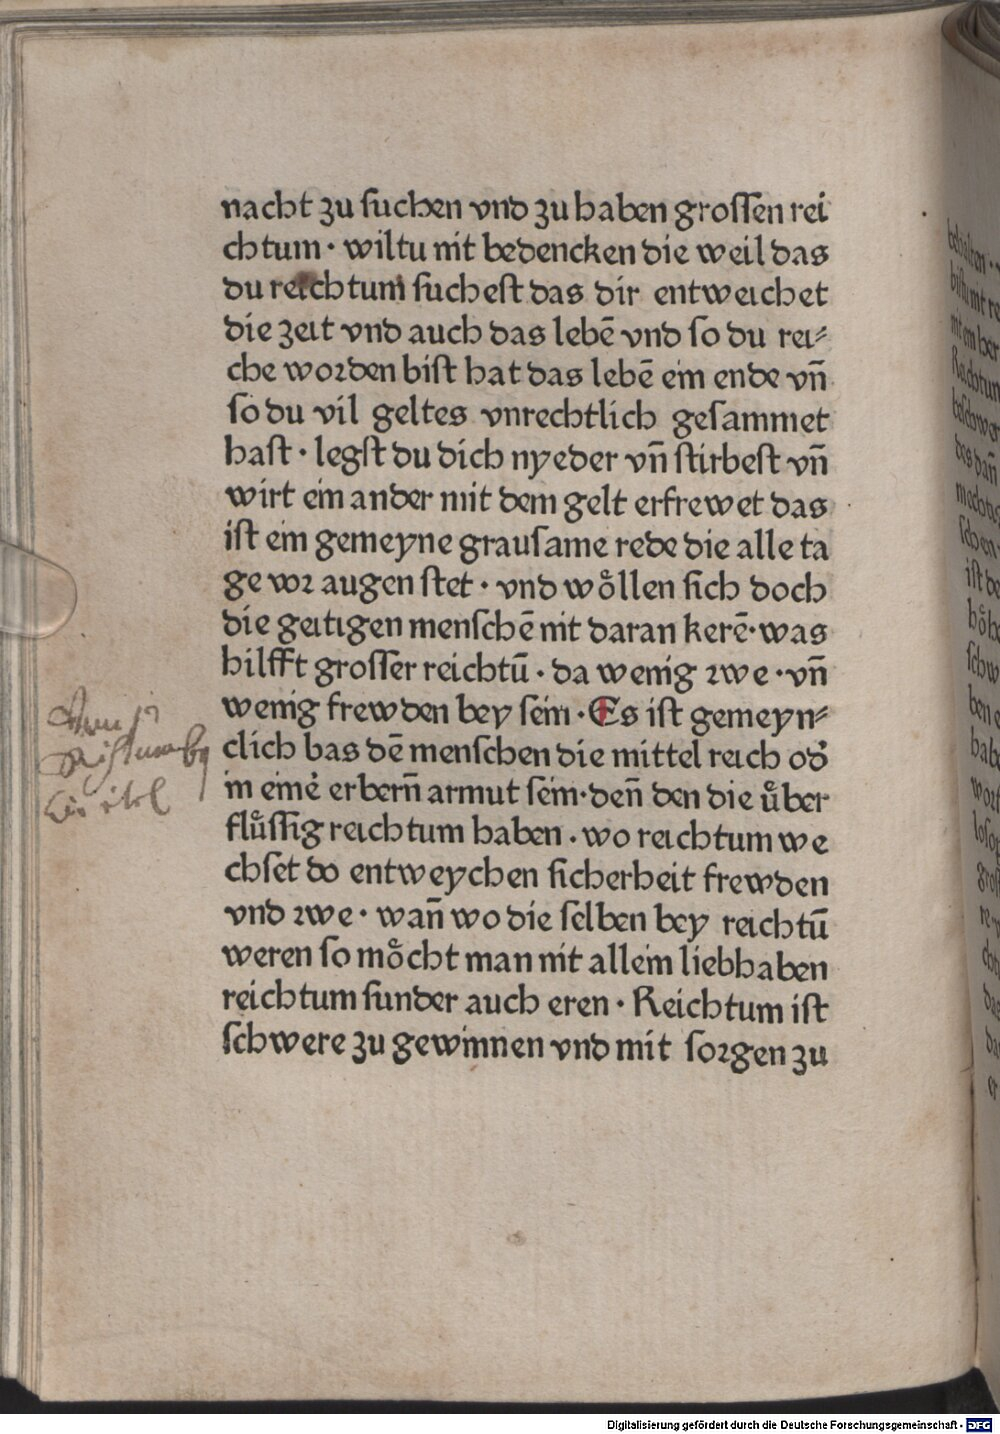 nacht zu ſuchen vnd zu haben groſſen rei
chtum · wiltu nit bedencken die weil das
du reichtum ſucheſt das dir entweichet
die zeit vnd auch das lebē vnd ſo du rei⸗
che worden biſt hat das lebē ein ende vn̄
ſo du vil geltes vnrechtlich geſammet
haſt · legſt du dich nyeder vn̄ ſtirbeſt vn̄
wirt ein ander mit dem gelt erfrewet das
iſt ein gemeyne grauſame rede die alle ta
ge vor augen ſtet · vnd woͤllen ſich doch
die geitigen menſchē nit daran kerē · was
hilfft groſſer reichtū · da wenig rwe · vn̄
wenig frewden bey ſein · Es iſt gemeyn⸗
clich bas dē menſchen die mittel reich od̓
in eine̓ erbern̄ armut ſein · den̄ den die uͤber
fluͤſſig reichtum haben · wo reichtum we
chſet do entweychen ſicherheit frewden
vnd rwe · wan̄ wo die ſelben bey reichtū
weren ſo moͤcht man nit allein liebhaben
reichtum ſunder auch eren · Reichtum iſt
ſchwere zu gewinnen vnd mit ſorgen zu
Digitalisierung gefördert durch die Deutsche Forschungsgemeinschaft - DFG